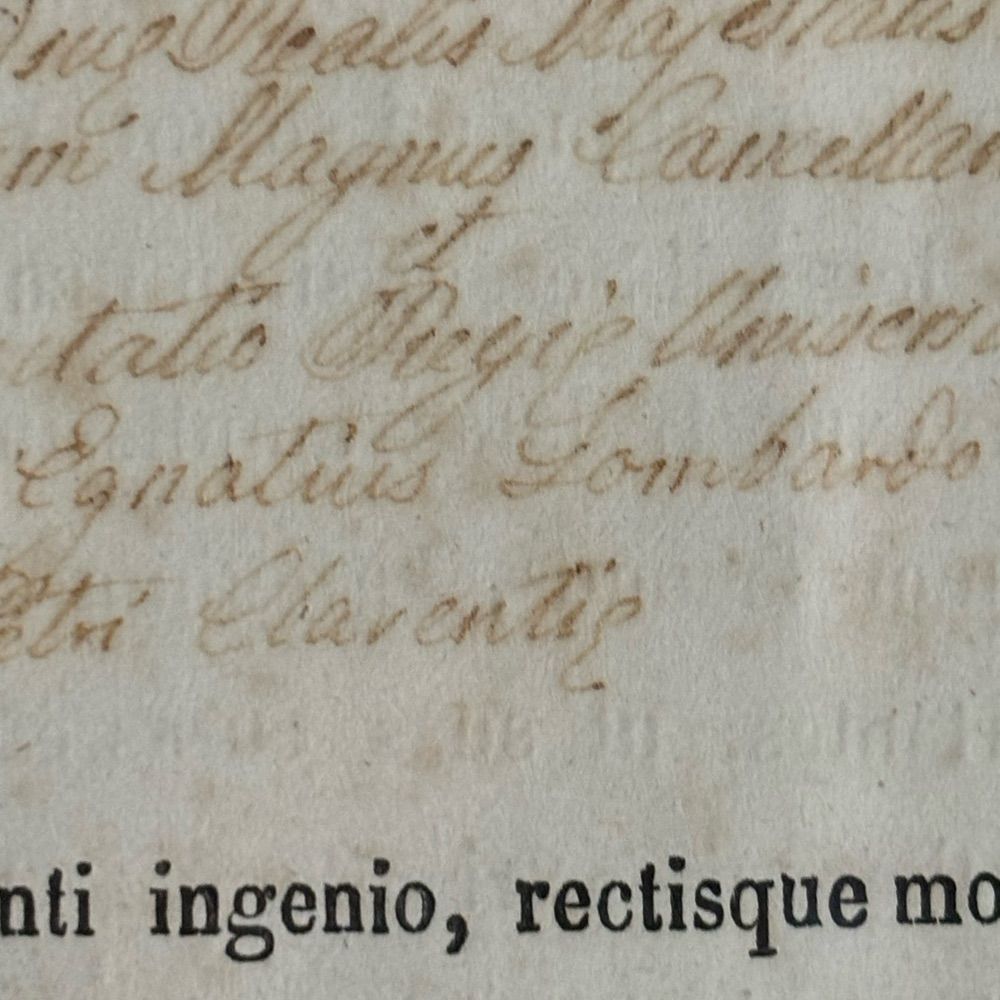 Realis Majestatis
Magnus Cancellar
et
Regiæ Univers
Egnatius Lombardo
Petri Clarentiæ
nti ingenio, rectisque mo